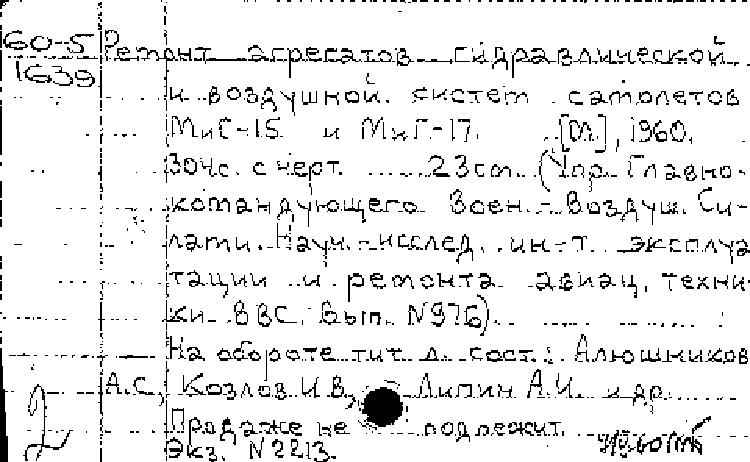 60-5 Ремонт агрегатов гидравлической
1639
и воздушной систем самолетов
МиГ-15 и МиГ-17. [М.], 1960.
304с. с черт. 23см. (Упр. Главно-
командующего Воен.-Воздуш. Си-
лами. Науч.-исслед. ин-т эксплуа
тации и ремонта авиац. техни-
ки ВВС. Вып. N976).
На обороте тит. л. сост.: Алюшников
А.С., Козлов И.В., Липин А.И. и др.
Продаже не подлежит.
Экз. N2213.
2